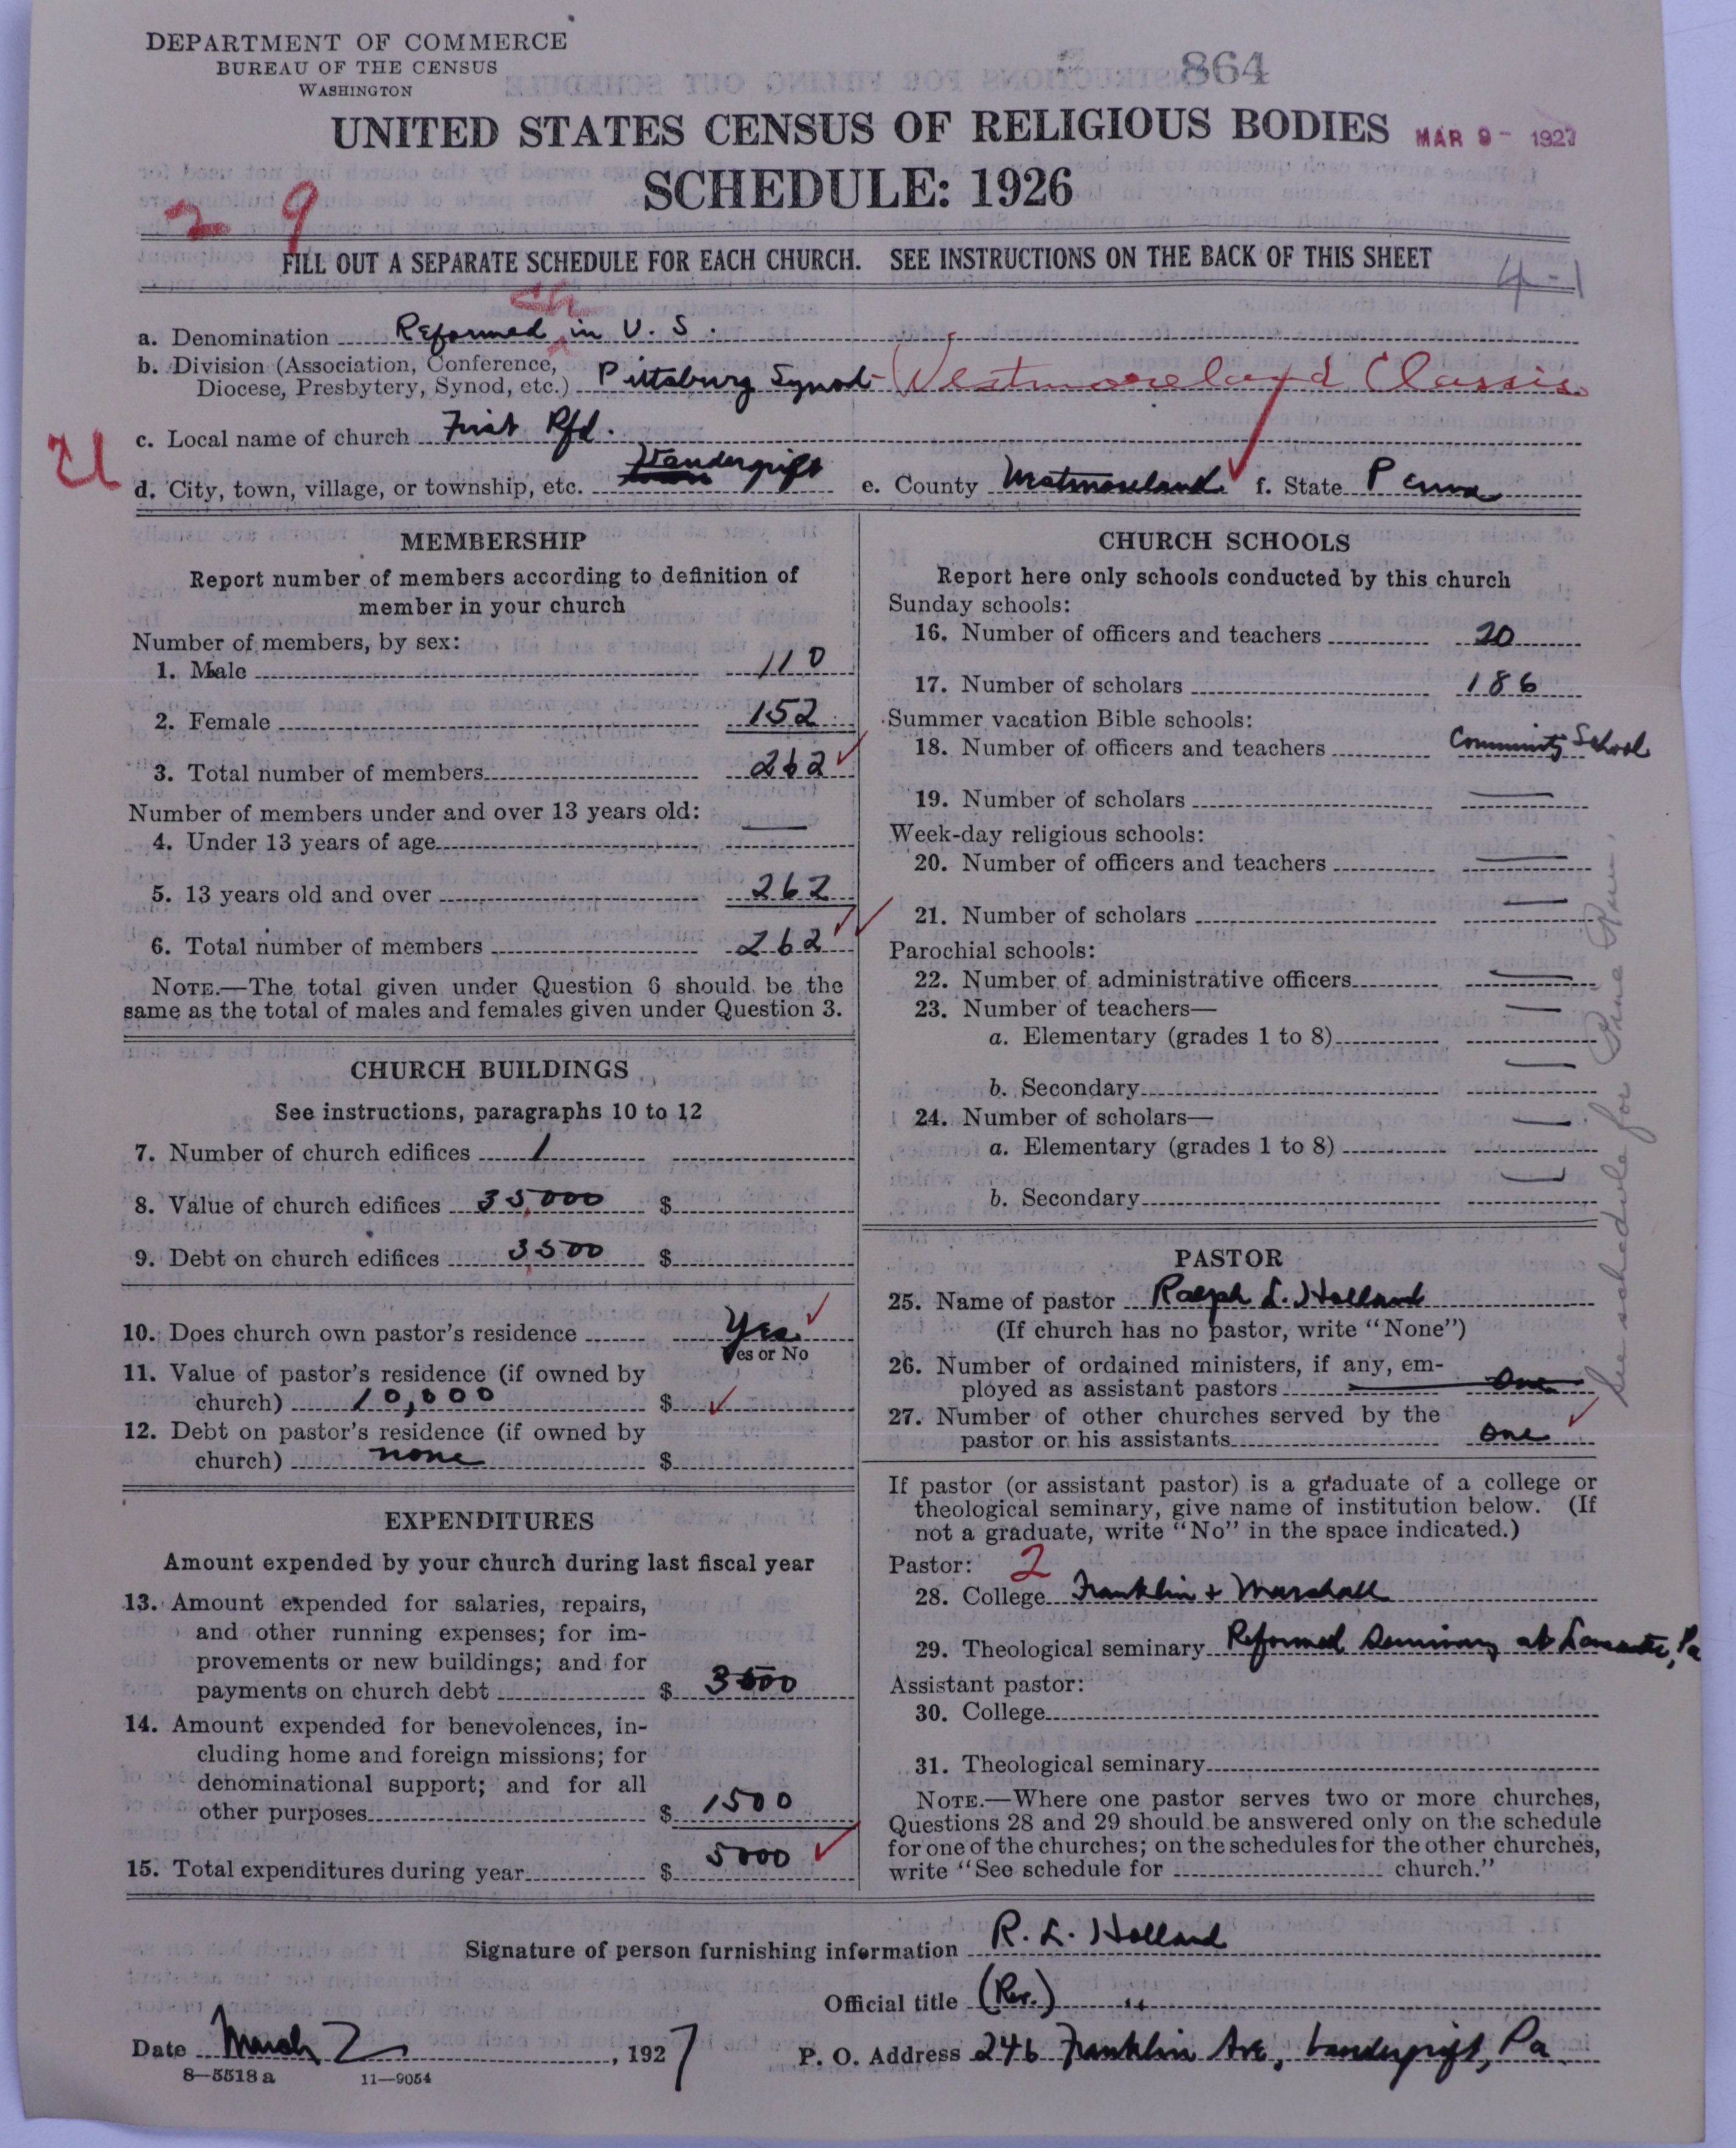 DEPARTMENT OF COMMERCE
BUREAU OF THE CENSUS
WASHINGTON
864
UNITED STATES CENSUS OF RELIGIOUS BODIES
MAR 9 - 1927
SCHEDULE: 1926
2 9
FILL OUT A SEPARATE SCHEDULE FOR EACH CHURCH. SEE INSTRUCTIONS ON THE BACK OF THIS SHEET
4-1
Ch
a. Denomination Reformed in U. S.
b. Division (Association, Conference,
Diocese, Presbytery, Synod, etc.) Pittsburg Synod - Westmoreland Classis
c. Local name of church First Rfd.
U
d. City, town, village, or township, etc. Vandergrift e. County Westmoreland f. State Penna
MEMBERSHIP
Report number of members according to definition of
member in your church
Number of members, by sex:
1. Male 110
2. Female 152
3. Total number of members 262
Number of members under and over 13 years old:
4. Under 13 years of age —
5. 13 years old and over 262
6. Total number of members 262
NOTE.—The total given under Question 6 should be the
same as the total of males and females given under Question 3.
CHURCH BUILDINGS
See instructions, paragraphs 10 to 12
7. Number of church edifices 1
8. Value of church edifices 35,000 $
9. Debt on church edifices 3,500 $
10. Does church own pastor's residence Yes
Yes or No
11. Value of pastor's residence (if owned by
church) 10,000 $
12. Debt on pastor's residence (if owned by
church) none $
EXPENDITURES
Amount expended by your church during last fiscal year
13. Amount expended for salaries, repairs,
and other running expenses; for im-
provements or new buildings; and for
payments on church debt $ 3500
14. Amount expended for benevolences, in-
cluding home and foreign missions; for
denominational support; and for all
other purposes $ 1500
15. Total expenditures during year $ 5000
CHURCH SCHOOLS
Report here only schools conducted by this church
Sunday schools:
16. Number of officers and teachers 20
17. Number of scholars 186
Summer vacation Bible schools:
18. Number of officers and teachers Community School
19. Number of scholars —
Week-day religious schools:
20. Number of officers and teachers —
21. Number of scholars —
Parochial schools:
22. Number of administrative officers —
23. Number of teachers—
a. Elementary (grades 1 to 8) —
b. Secondary —
24. Number of scholars—
a. Elementary (grades 1 to 8) —
b. Secondary —
See schedule for Pine Run.
PASTOR
25. Name of pastor Ralph L. Holland
(If church has no pastor, write "None")
26. Number of ordained ministers, if any, em-
ployed as assistant pastors One
27. Number of other churches served by the
pastor or his assistants One
If pastor (or assistant pastor) is a graduate of a college or
theological seminary, give name of institution below. (If
not a graduate, write "No" in the space indicated.)
Pastor: 2
28. College Franklin + Marshall
29. Theological seminary Reformed Seminary at Lancaster, Pa
Assistant pastor:
30. College
31. Theological seminary
NOTE.—Where one pastor serves two or more churches,
Questions 28 and 29 should be answered only on the schedule
for one of the churches; on the schedules for the other churches,
write "See schedule for church."
Signature of person furnishing information R. L. Holland
Official title (Rev.) "
Date March 2, 1927
P. O. Address 246 Franklin Ave, Vandergrift, Pa
8—5518 a 11—9054